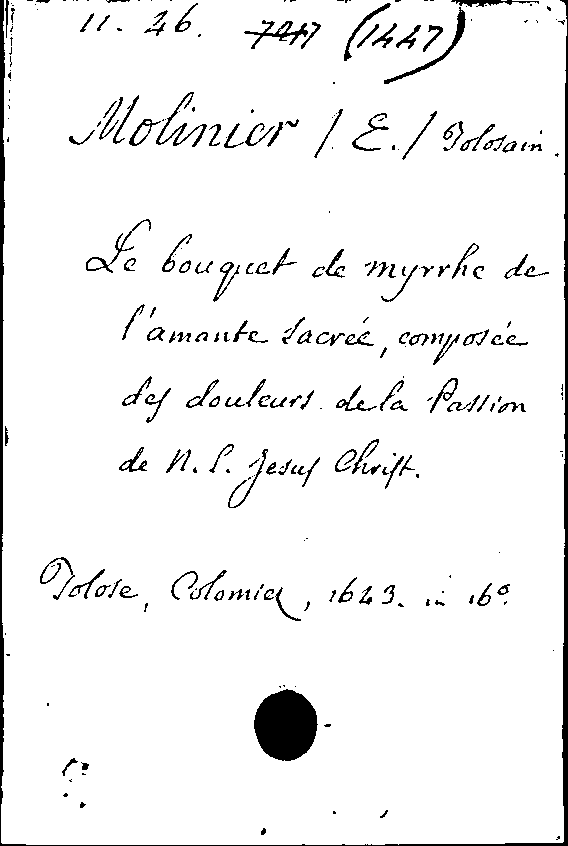 11. 26. 7217 (1447)
Molinier / E. / Tolosain.
Le bouquet de myrrhe de
l'amante sacrée, composée
des douleurs de la Passion
de N. S. Jesus Christ.
Tolose, Colomiez, 1643. in 16°.